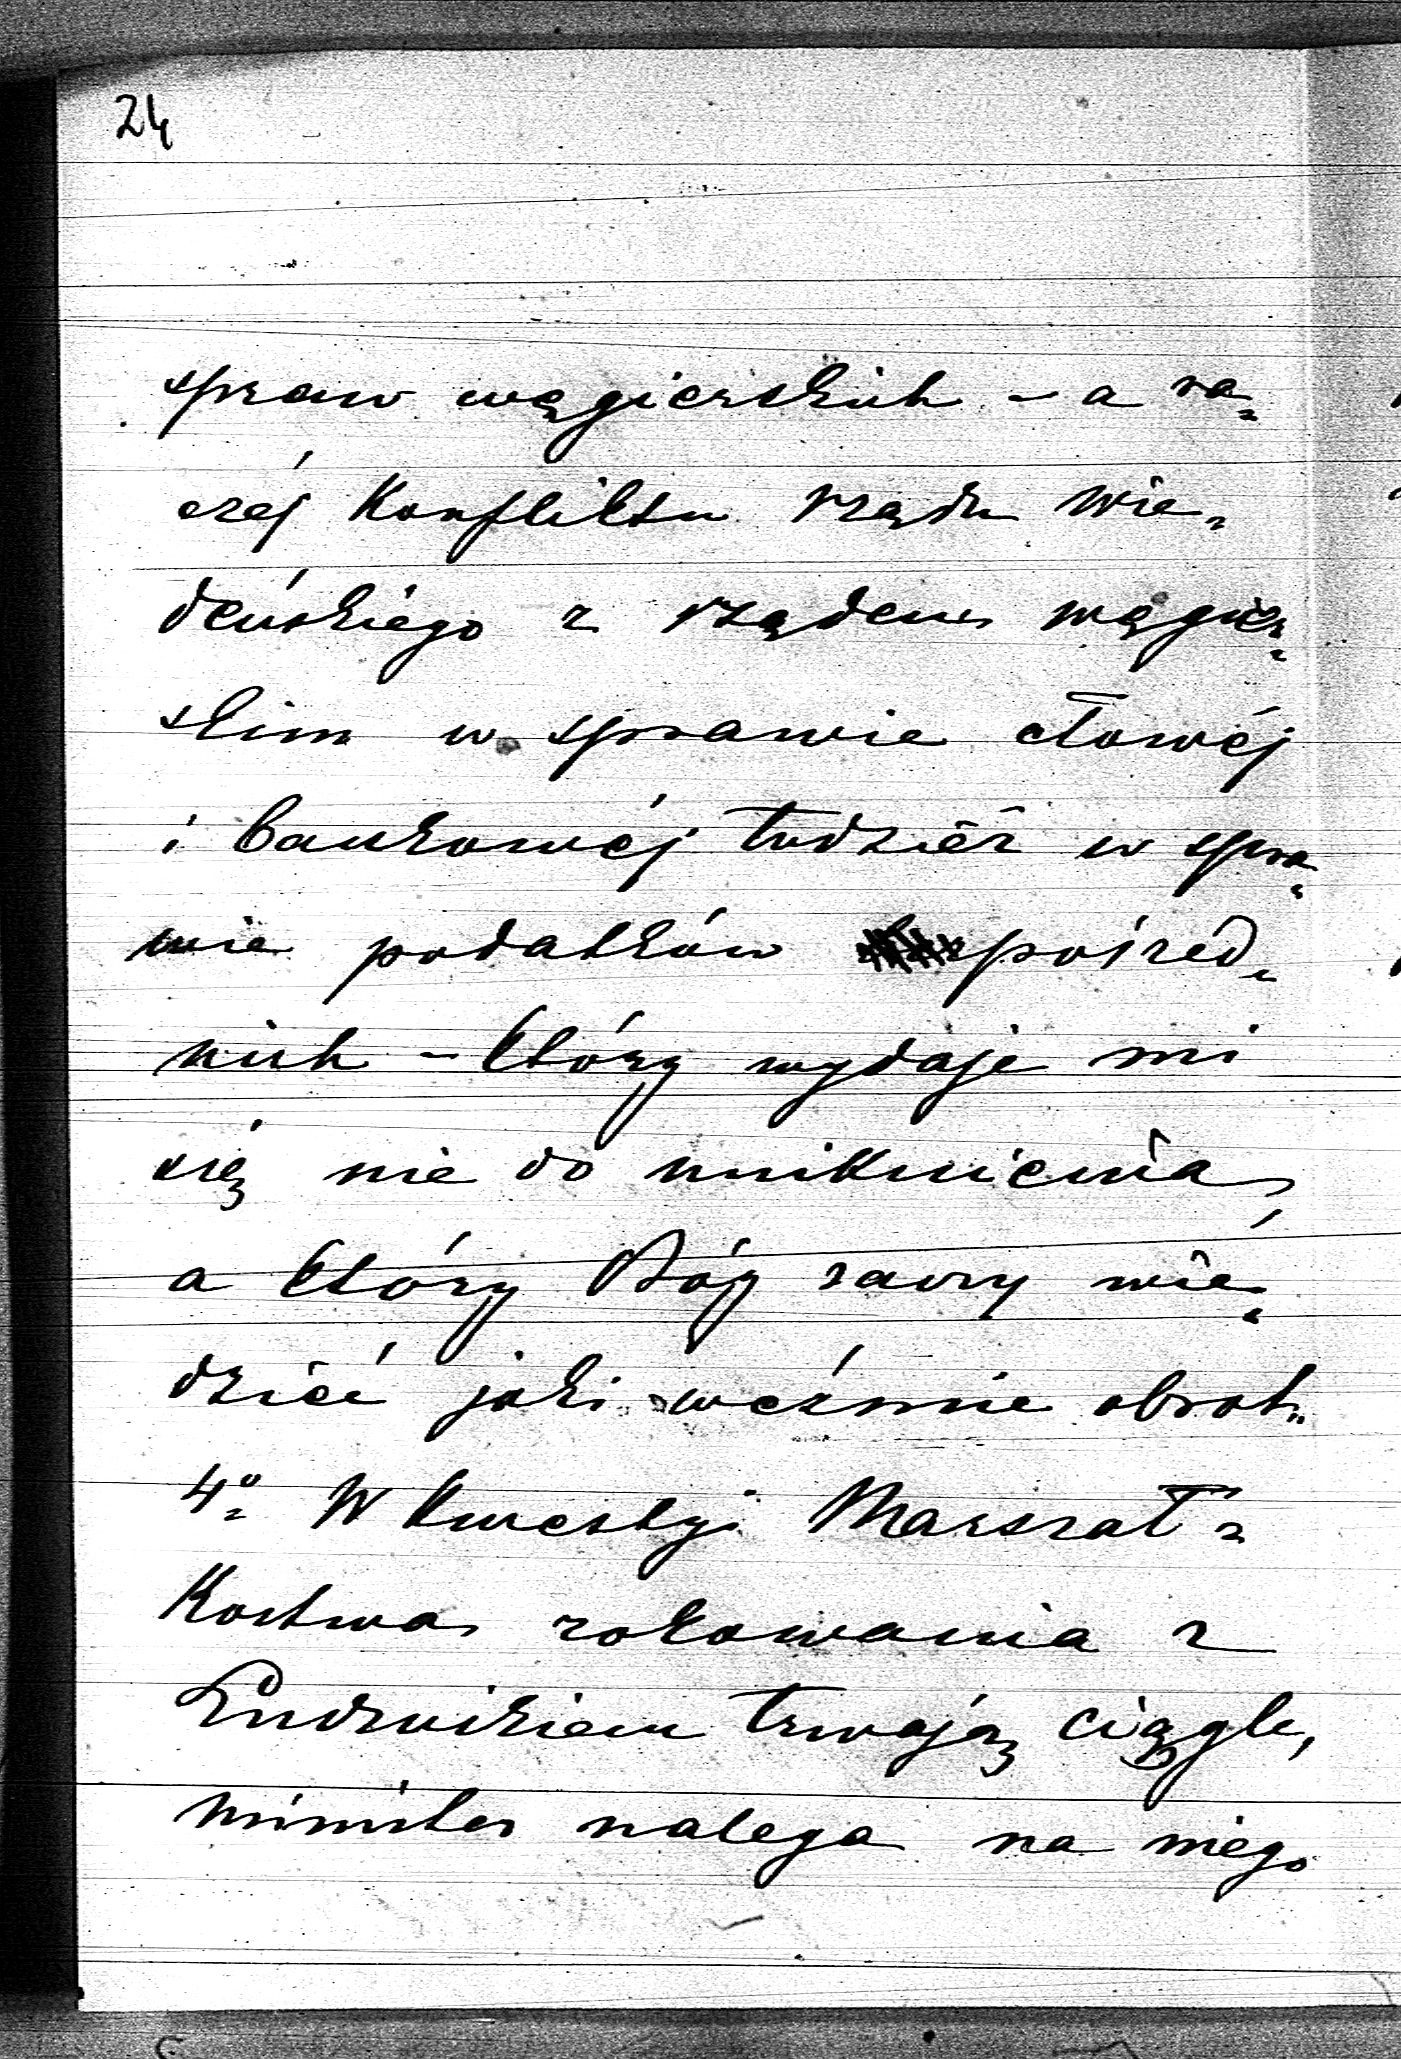 24
spraw wągierskich – a ra-
czéj Konfliktu rządu Wie-
deńskiego z rządem wągier-
skim w sprawie cłowéj
i bankowéj tudzież w spra-
wie podatków pośred-
nich – który wydaje mi
się nie do uniknienia,
a który Bóg raczy wie-
dzieć jaki weźmie obrot.
4o W kwestyi Marszał-
kostwa rokowania z
Ludwikiem trwają ciągle,
minister nalega na niego